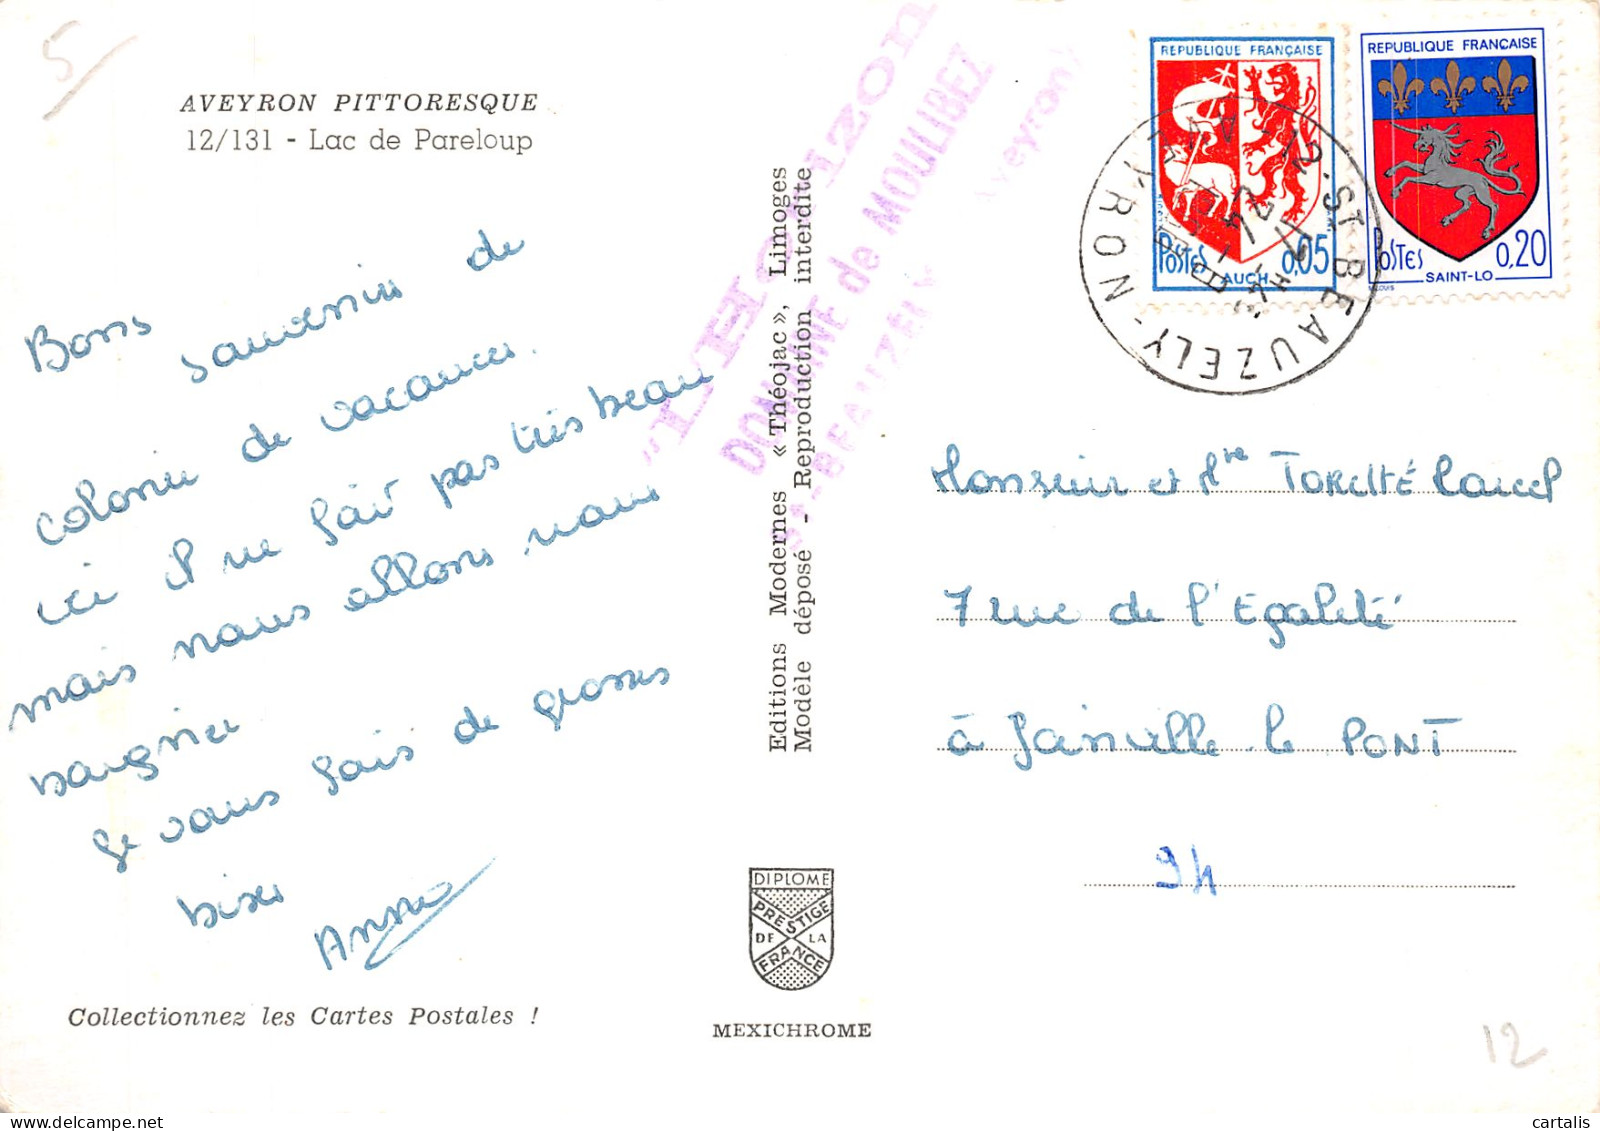 5
AVEYRON PITTORESQUE
12/131 - Lac de Pareloup
Bons souvenirs de
colonie de vacances.
ici il ne fait pas très beau
mais nous allons nous
baigner
Je vous fais de grosses
bises
Anne
Collectionnez les Cartes Postales !
Editions Modernes « Théojac », Limoges
Modèle déposé - Reproduction interdite
DIPLOME
PRESTIGE
DE LA
FRANCE
MEXICHROME
DOMAINE de MOULIBEZ
BEAUZELY
(Aveyron)
REPUBLIQUE FRANÇAISE
POSTES
AUCH
0,05
REPUBLIQUE FRANÇAISE
POSTES
0,20
SAINT-LO
12-ST BEAUZELY-AVEYRON
Monsieur et Me TORCITÉ
7 rue de l'Egalité
à Joinville le PONT
94
12
cartalis